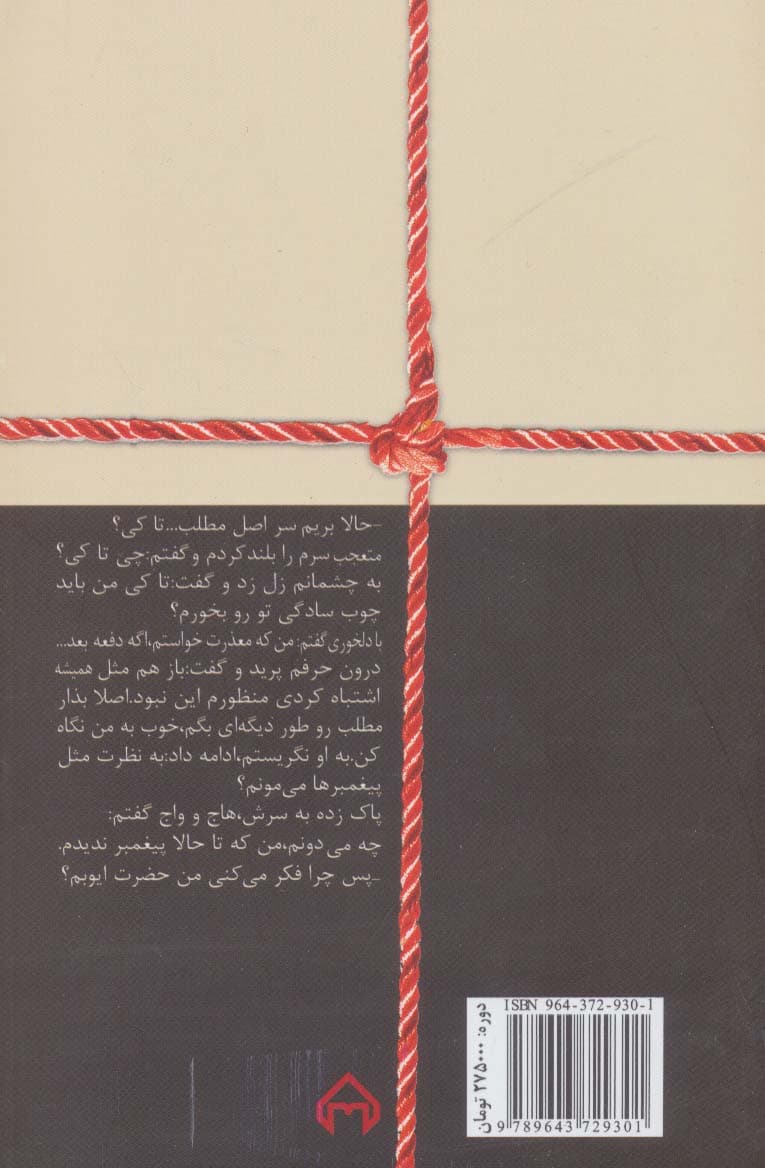 -حالا بریم سر اصل مطلب...تا کی؟
متعجب سرم را بلند کردم و گفتم:چی تا کی؟
به چشمانم زل زد و گفت:تا کی من باید
چوب سادگی تو رو بخورم؟
با دلخوری گفتم:من که معذرت خواستم،اگه دفعه بعد...
درون حرفم پرید و گفت:باز هم مثل همیشه
اشتباه کردی منظورم این نبود.اصلا بذار
مطلب رو طور دیگه‌ای بگم،خوب به من نگاه
کن.به او نگریستم،ادامه داد:به نظرت مثل
پیغمبرها می‌مونم؟
پاک زده به سرش،هاج و واج گفتم:
چه می‌دونم،من که تا حالا پیغمبر ندیدم.
_پس چرا فکر می‌کنی من حضرت ایوبم؟
ISBN 964-372-930-1
دوره: ۲۷۵۰۰۰ تومان
9 789643 729301